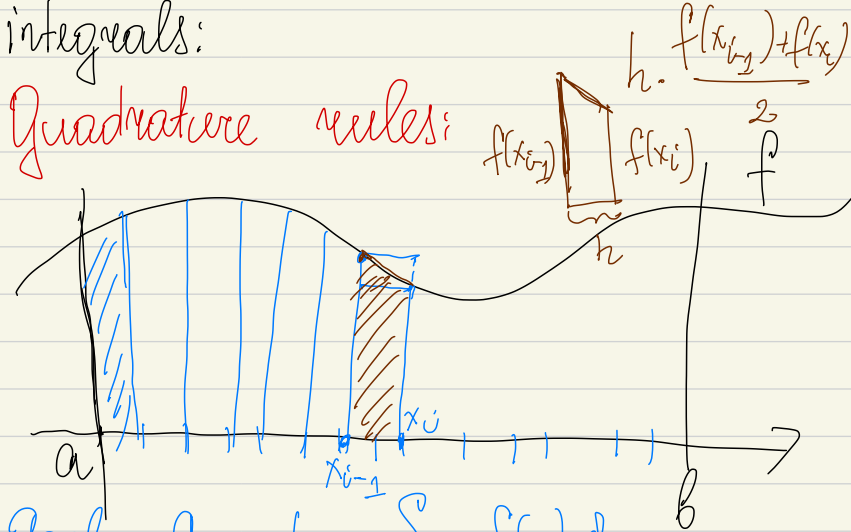 integrals:
Quadrature rules:
h. f(x_{i-1})+f(x_i)
2
f(x_{i-1})
f(x_i)
f
h
x_i
x_{i-1}
a
b